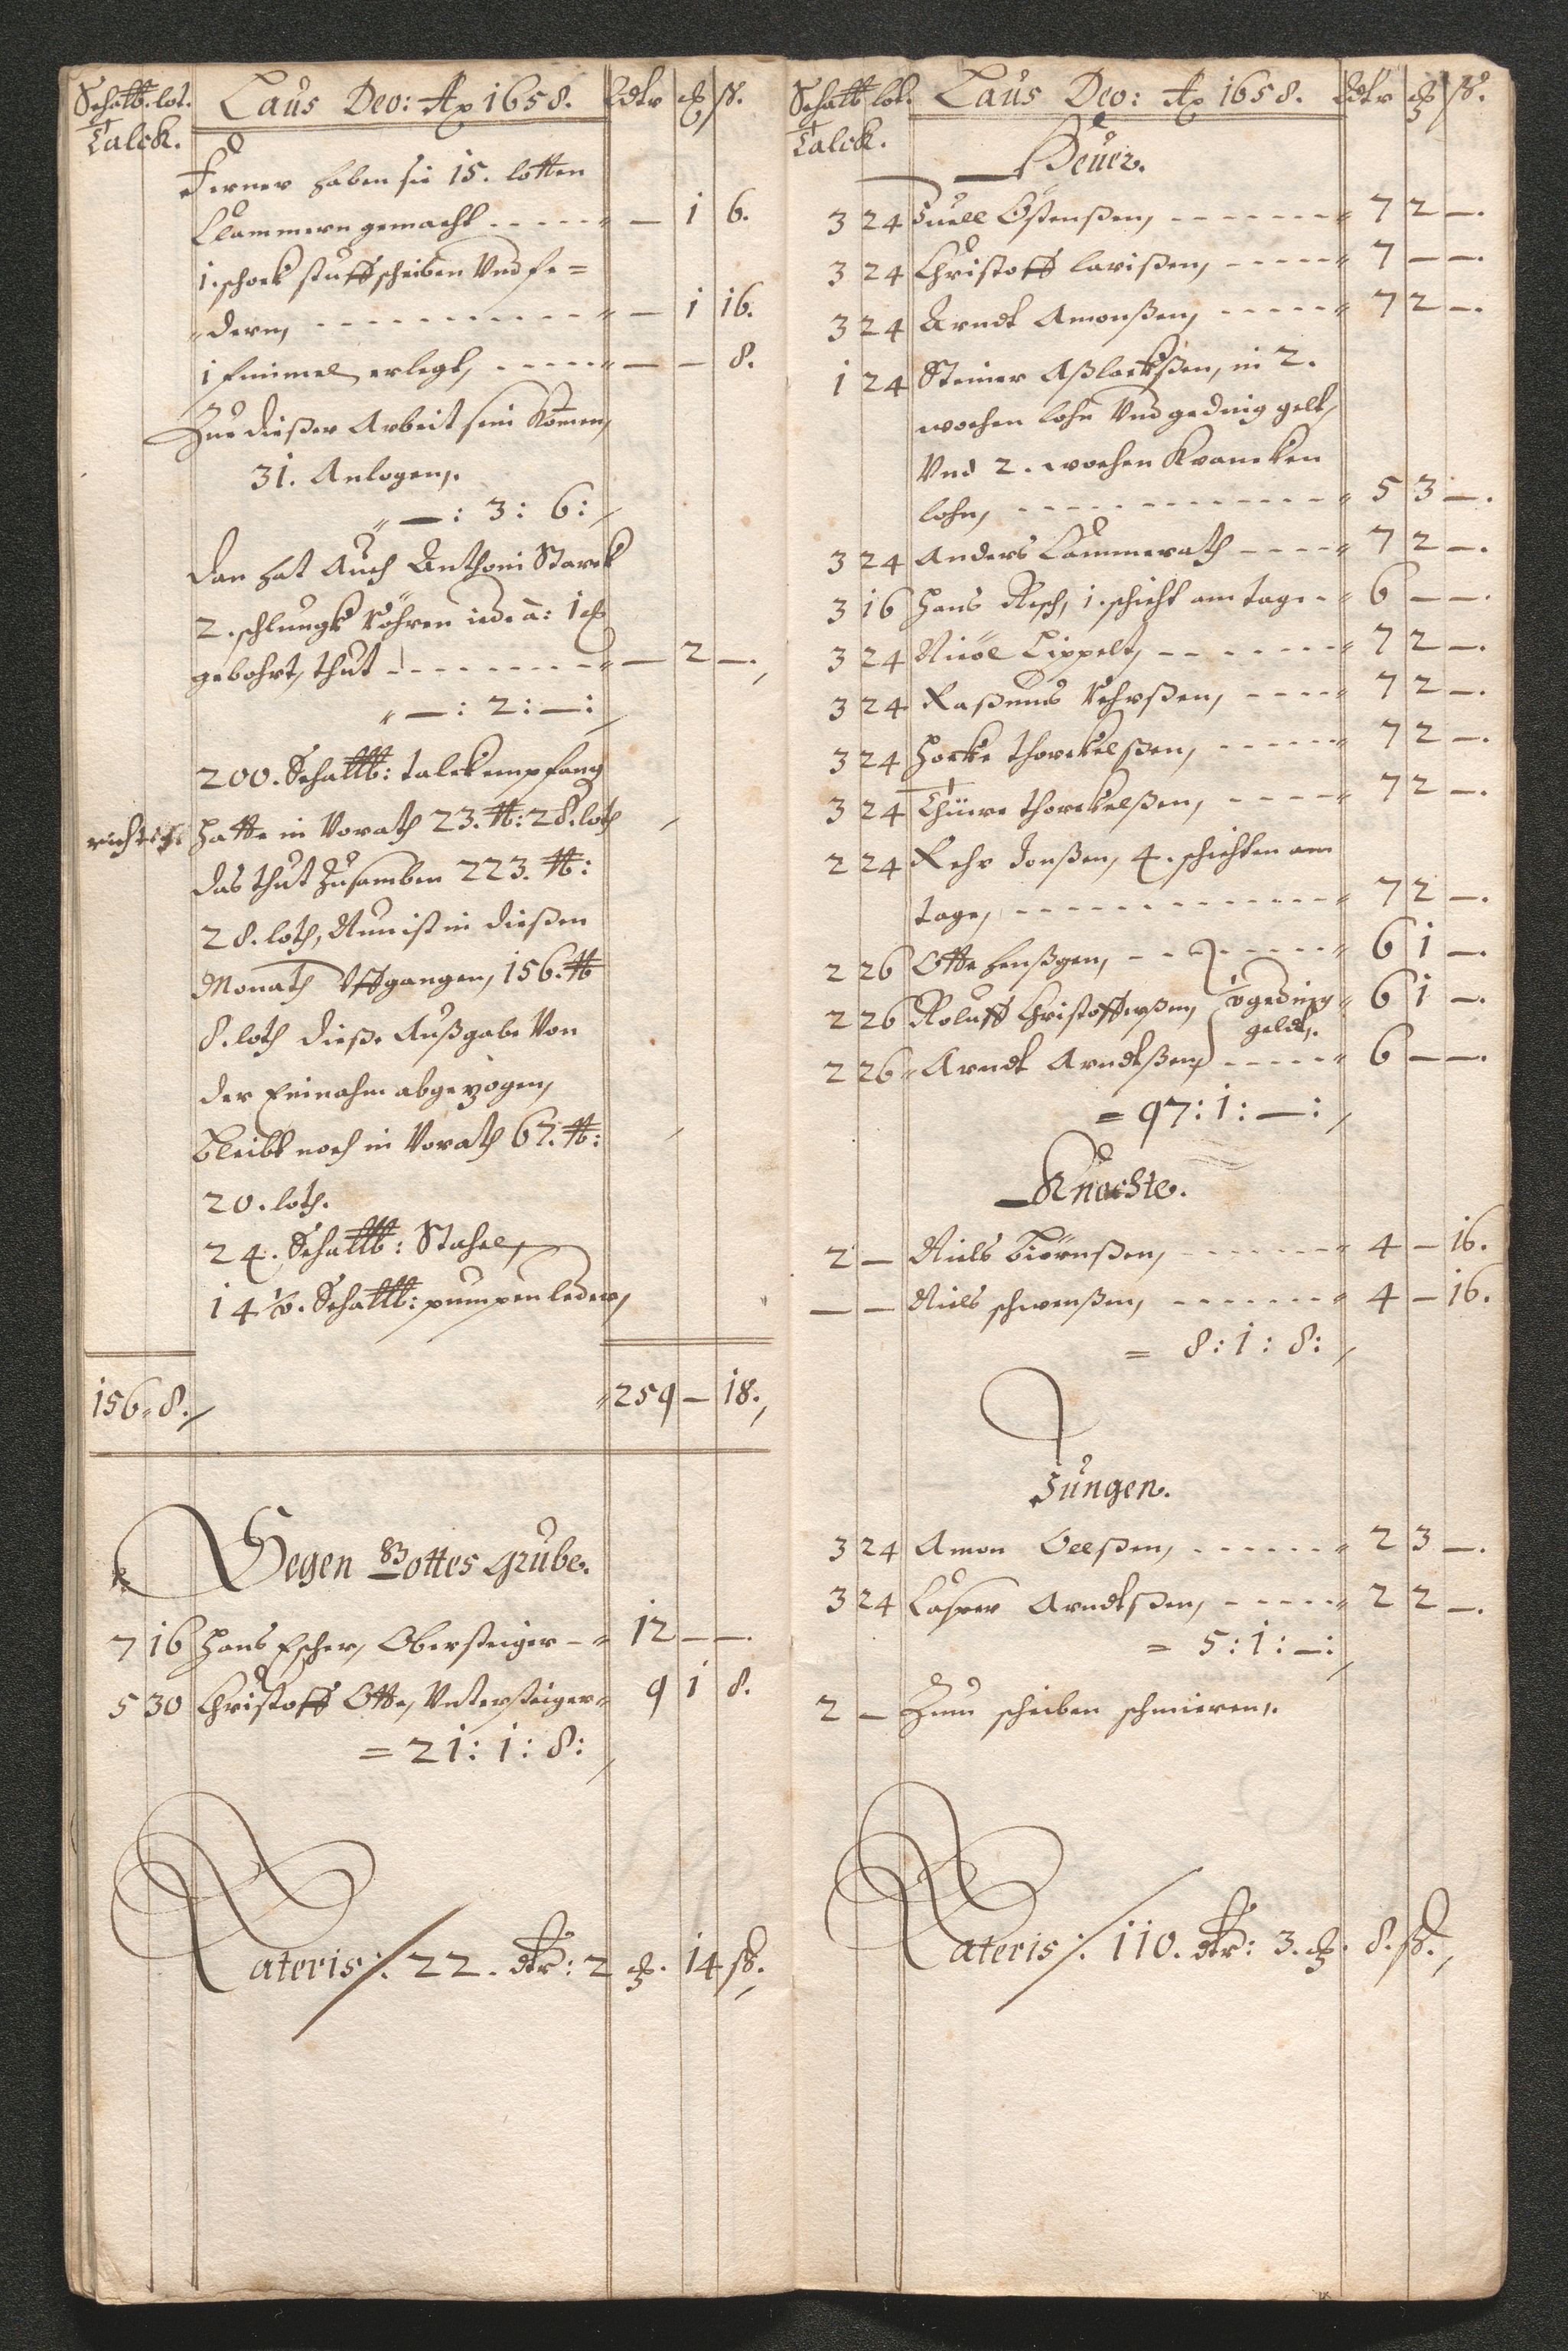 Schalb. lot. Laus Deo: Ao 1658. Rdtr ß.
Talck.
Ferner haben sie 15. lotten
Clammern gemacht - - - - - " — 1 6.
1. schock stuffscheiben Vnd fe=
"dern, - - - - - - - - - - " — 1 16.
1 Fimmel erlegt, - - - - - " — — 8.
Zue dießer Arbeit sein Komen,
31. Anlogen,.
" —: 3: 6:
Dan hat Auch Anthoni Starck
2. schlungk Röhren iede à: 1
gebohrt, thut - - - - - - - - " — 2 —.
" —: 2: —:
200. Schalb: talck empfang
richtig. hatte in Vorath 23. lb: 28. loth
das thut Zusamben 223. lb:
28. loth, Nun ist in dießen
Monath Vffgangen, 156. lb
8. loth dieße Außgabe Von
der Einahm abgezogen,
bleibt noch in Vorath 67. lb:
20. loth.
24. Schalb: Stahel,
14 Schalb: pumpen leder,
156 " 8. " 259 — 18.
Segen Gottes Grube.
7 16 Hans Escher, Obersteiger - " 12 — —.
5 30 Christoff Otte, Untersteiger " 9 1 8.
= 21: 1: 8:
Lateris /. 22. dtr: 2 14 ß.
Schalb lot. Laus Deo: Ao 1658. Rdtr ß.
Talck.
Heuer.
3 24 Juell Östenßen, - - - - - - - " 7 2 —.
3 24 Christoff larißen, - - - - - " 7 — —.
3 24 Arndt Amonßen, - - - - - " 7 2 —.
1 24 Steiner Aßlackßen, in 2.
wochen lohn Vnd geding gelt,
Vnd 2. wochen Krancken
lohn, - - - - - - - - - - - - " 5 3 —.
3 24 Anders Cammerath - - - - " 7 2 —.
3 16 Hans Resch, 1. schicht am tage - " 6 — —.
3 24 Nicol Lippelt, - - - - - - - " 7 2 —.
3 24 Raßmus Rehrßen, - - - - " 7 2 —.
3 24 Hocke Thorckelßen, - - - - - " 7 2 —.
3 24 Thüre Thorckelßen, - - - - " 7 2 —.
2 24 Rehr Jonßen, 4. schichten am
tage, - - - - - - - - - - - - - " 7 2 —.
2 26 Otte henßgen, - - - - - - - " 6 1 —.
2 26 Roluff Christofferßen, geding " 6 1 —.
geldt,.
2 26 " Arndt Arndtßen, - - - - - " 6 — —.
= 97: 1: —:
Knechte.
2 — Niels Biörnßen, - - - - - - - " 4 — 16.
— — Niels schwenßen, - - - - - - - " 4 — 16.
= 8: 1: 8:
Jungen.
3 24 Amon Oelßen, - - - - - - " 2 3 —.
3 24 Casper Arndtßen, - - - - - " 2 2 —.
= 5: 1: —:
2 — Zum scheiben schmieren,.
Lateris /. 110. dtr: 3. 8. ß.